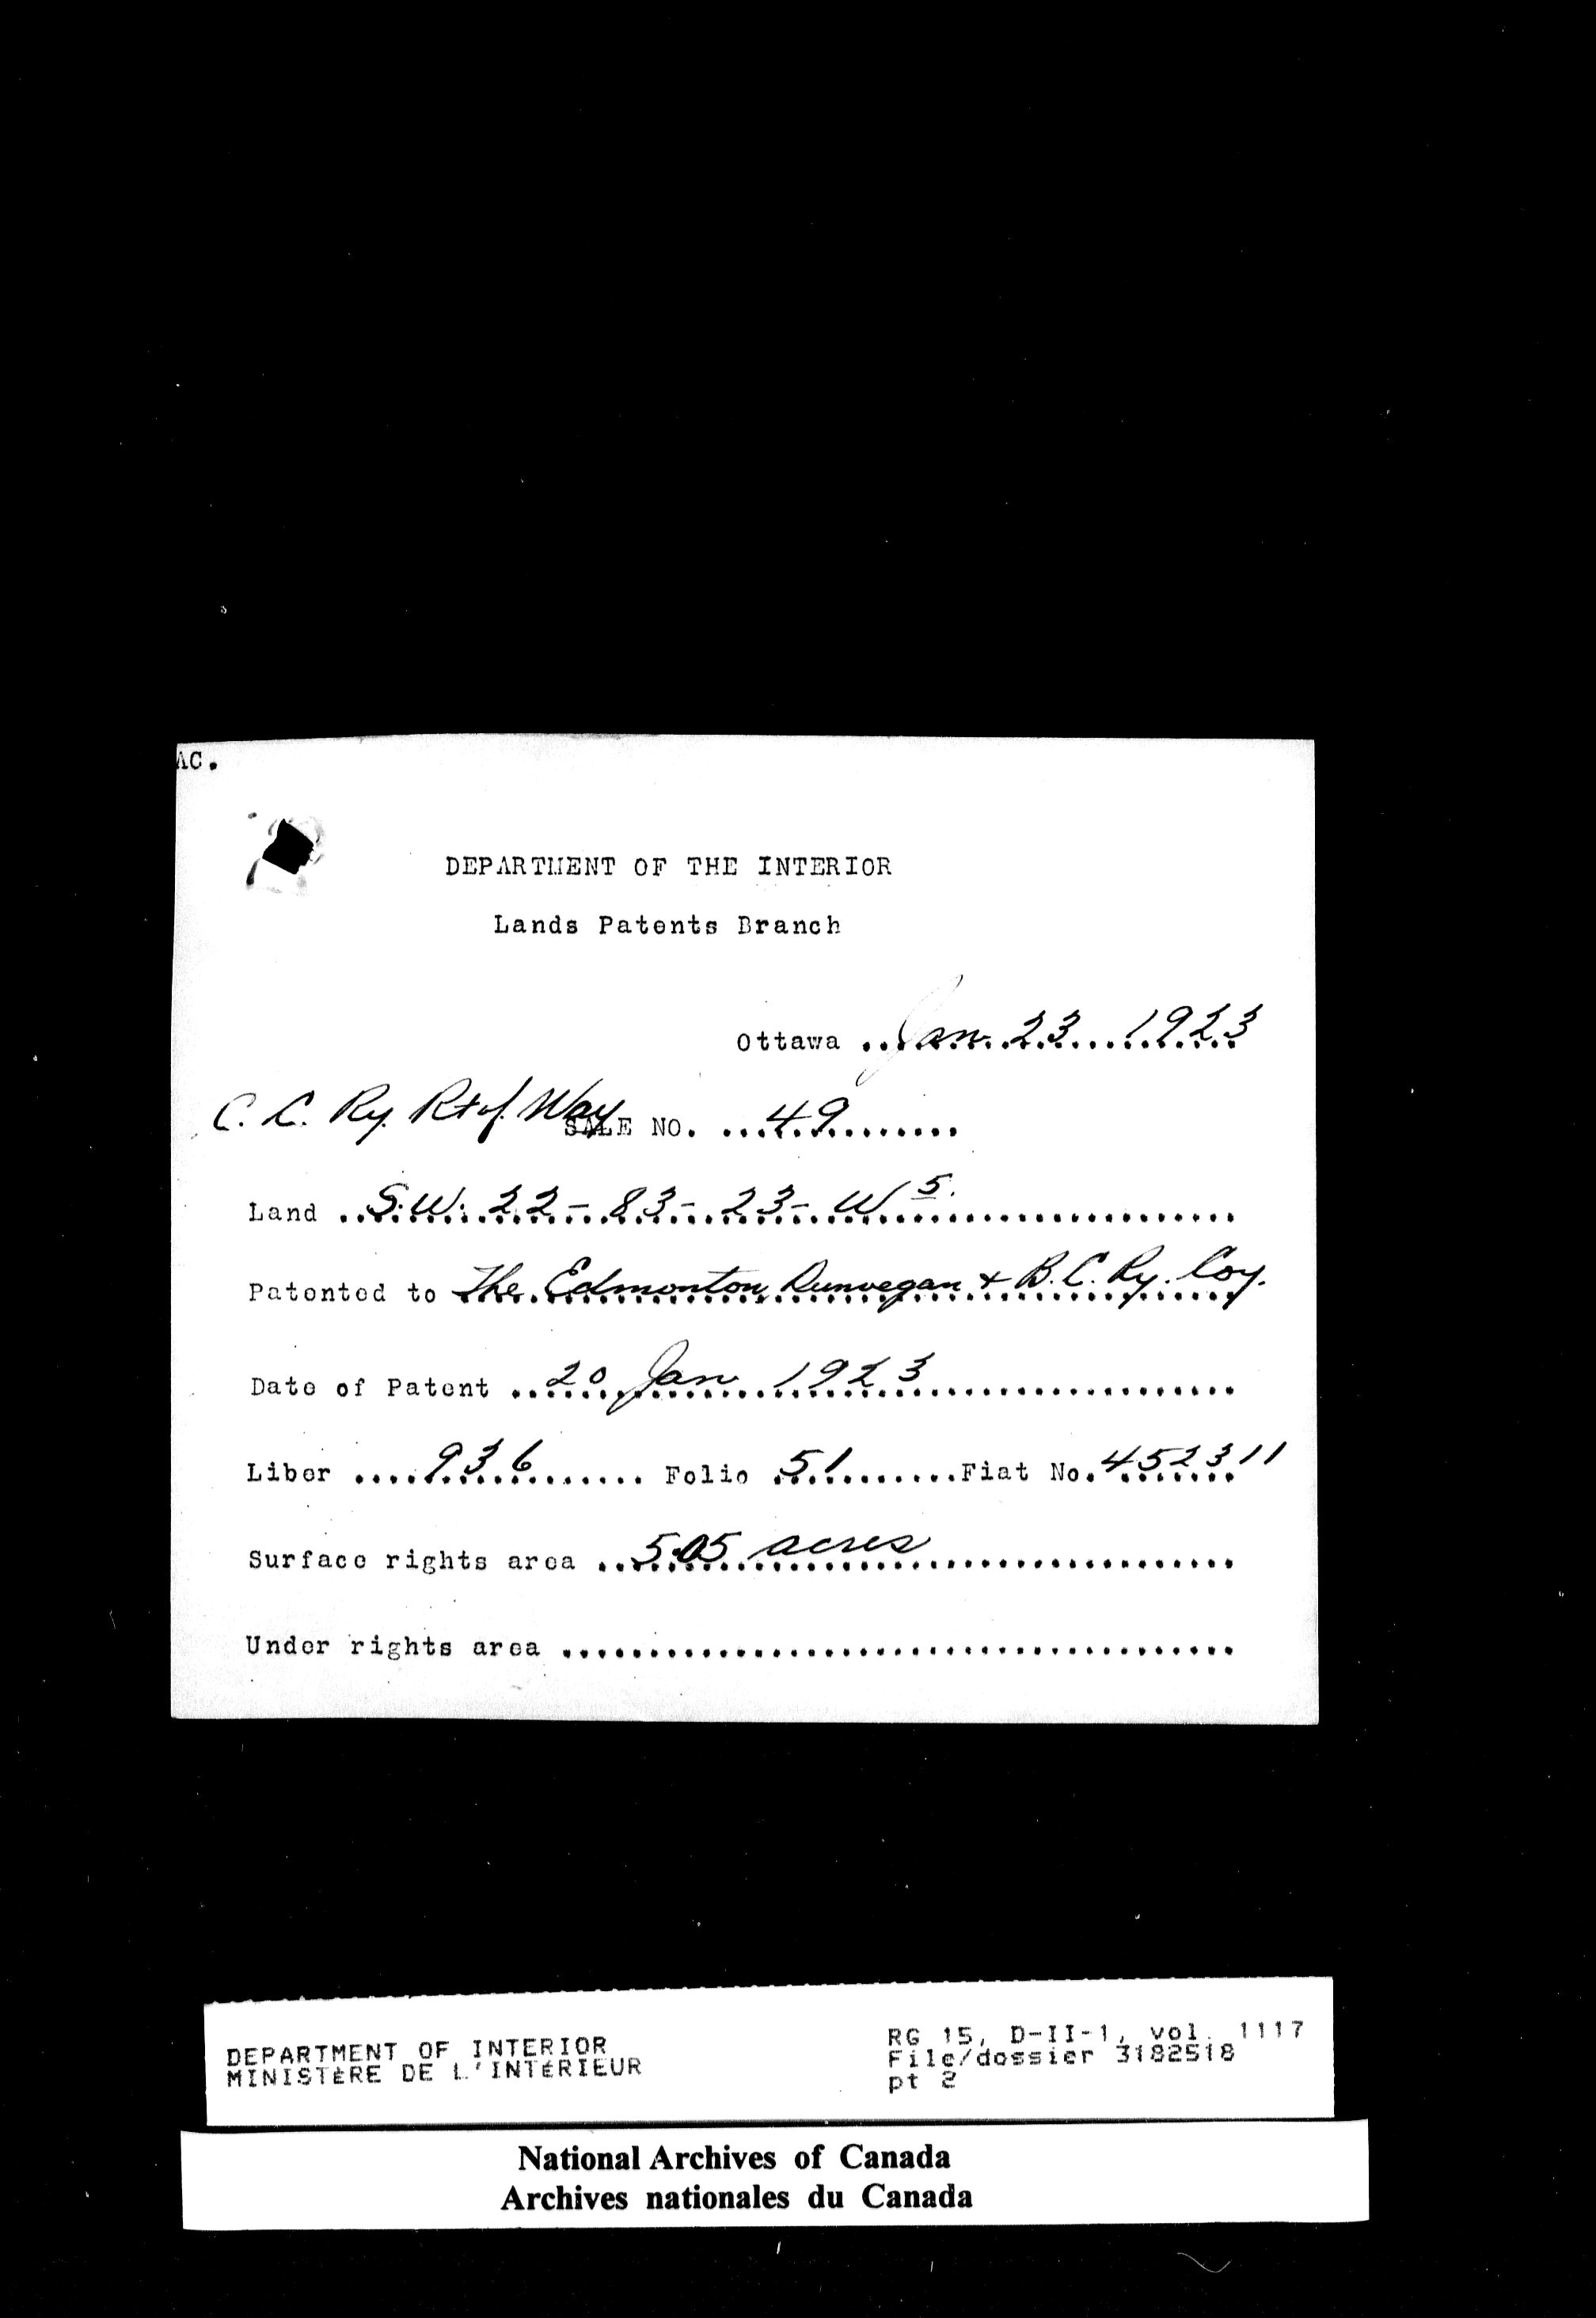 AC.
DEPARTMENT OF THE INTERIOR
Lands Patents Branch
Ottawa ..Jan. 23 1923
C. C. Ry. Rt of Way SALE NO. ...49...
Land ..S.W. 22 - 83 - 23 - W 5.
Patented to The Edmonton, Dunvegan + B.C. Ry. Coy.
Date of Patent ..20 Jan 1923
Liber ....936...... Folio 51........Fiat No. 452311
Surface rights area ..5.05 acres
Under rights area ........................................
DEPARTMENT OF INTERIOR
MINISTÈRE DE L'INTÉRIEUR
RG 15, D-II-1, vol. 1117
File/dossier 3182518
pt 2
National Archives of Canada
Archives nationales du Canada